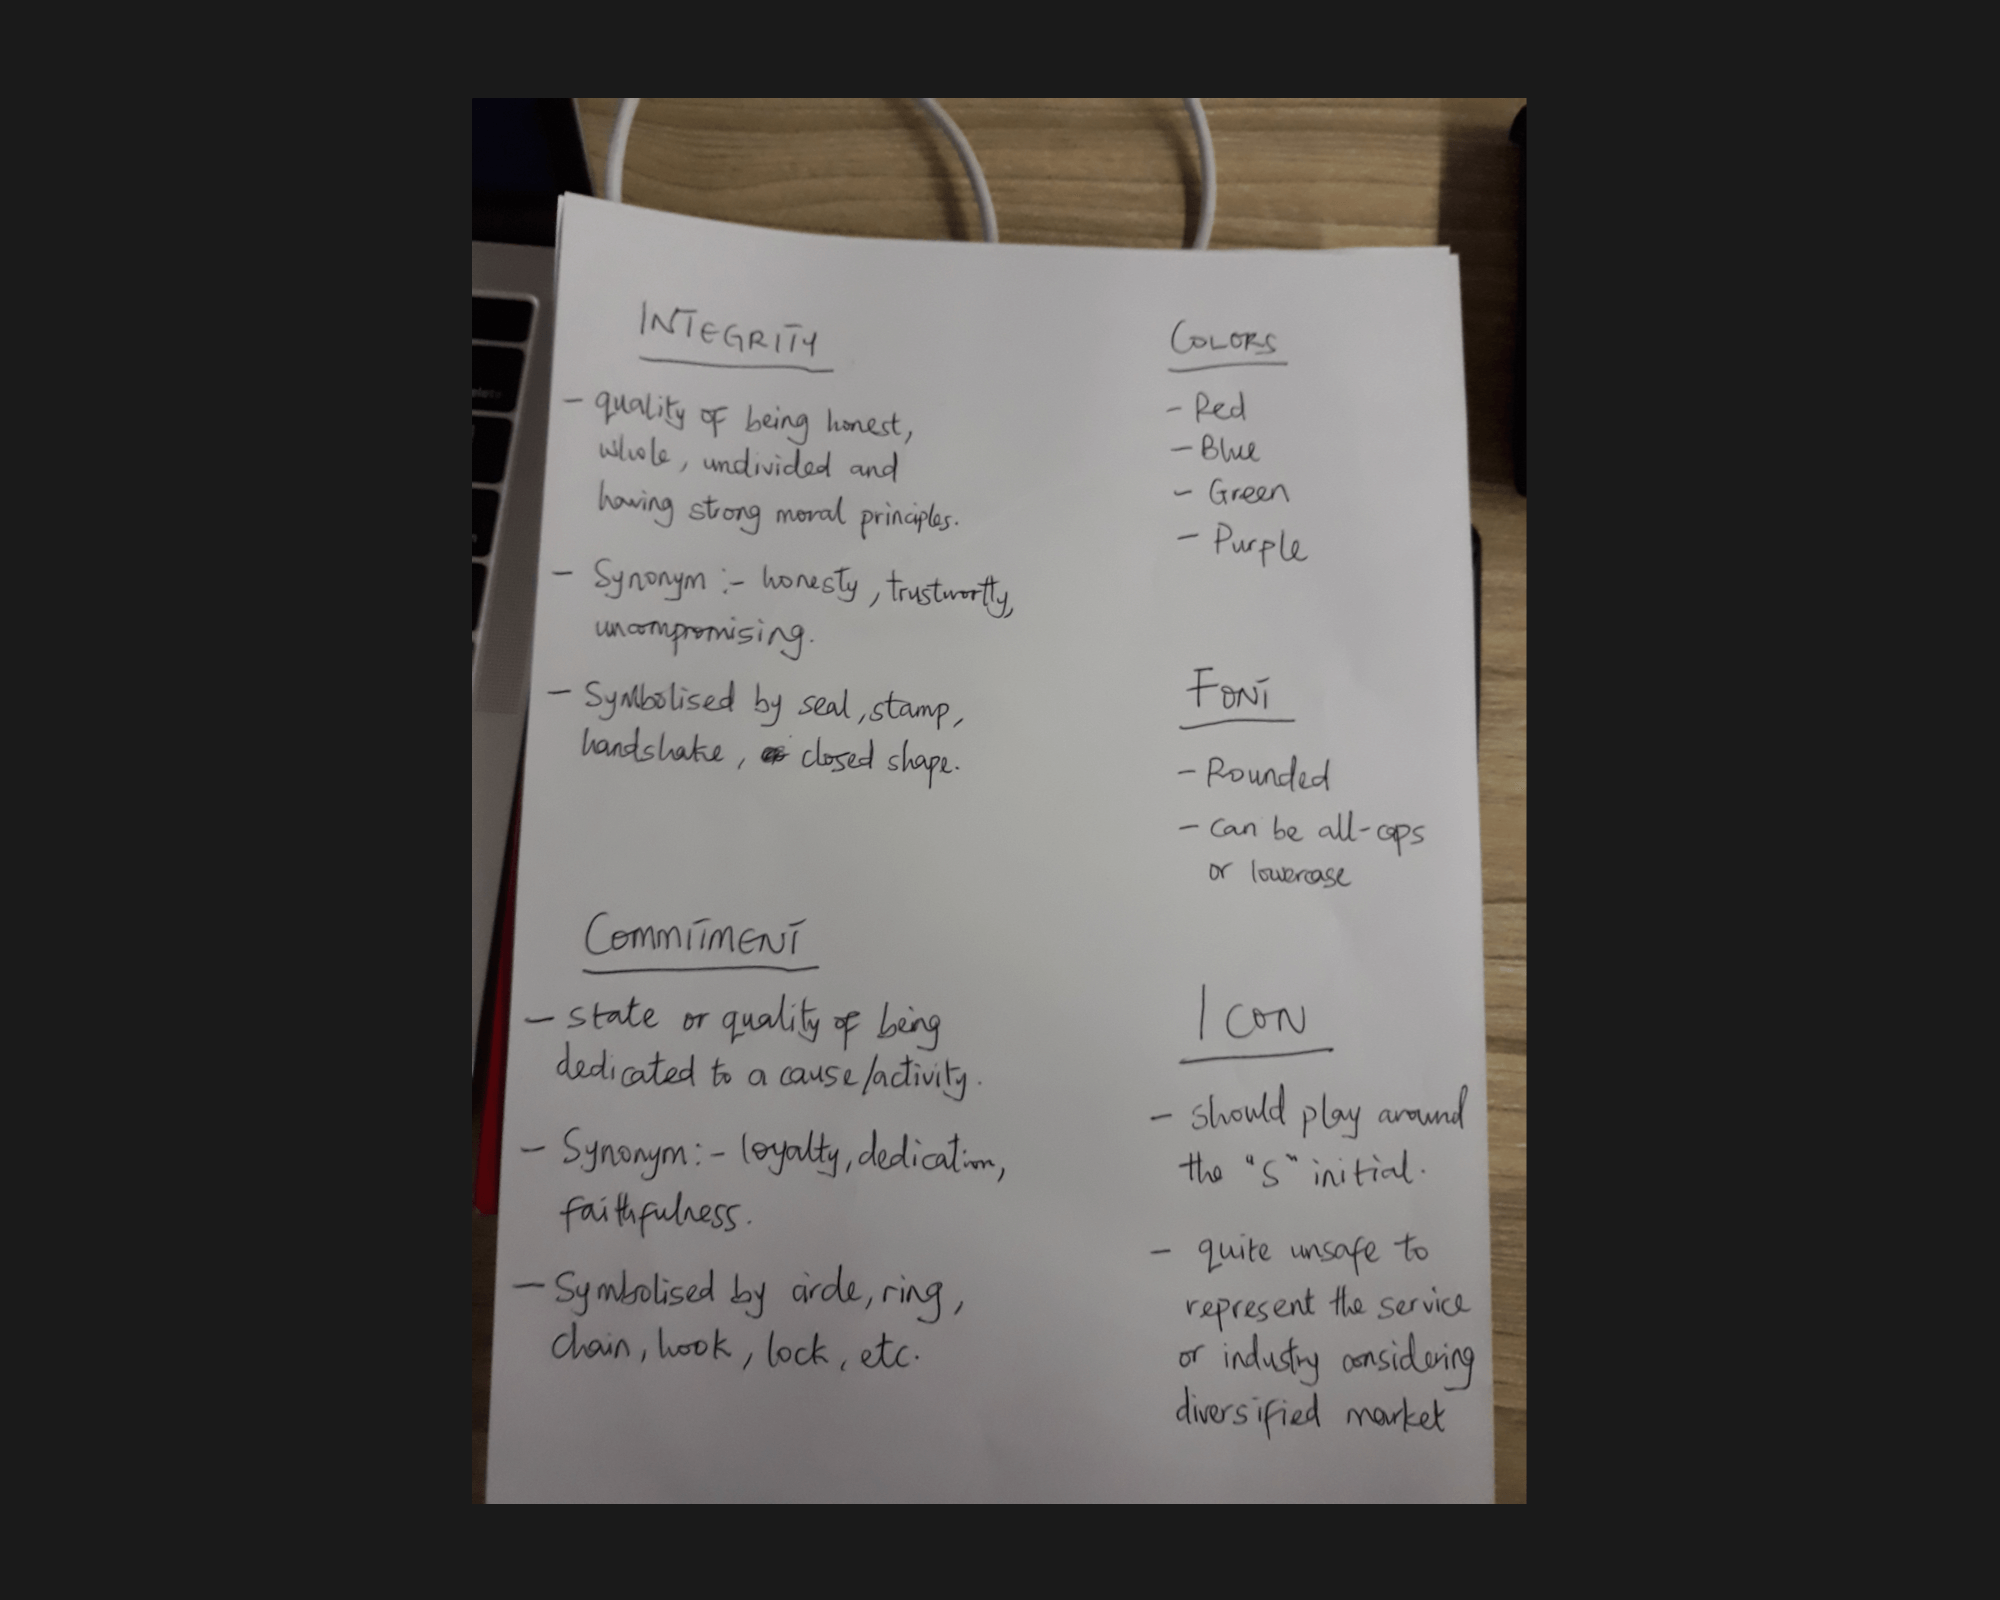 INTEGRITY
- quality of being honest,
whole, undivided and
having strong moral principles.
- Synonym :- honesty, trustworthy,
uncompromising.
- Symbolised by seal, stamp,
handshake, closed shape.
COMMITMENT
- state or quality of being
dedicated to a cause/activity.
- Synonym :- loyalty, dedication,
faithfulness.
- Symbolised by circle, ring,
chain, hook, lock, etc.
COLORS
- Red
- Blue
- Green
- Purple
FONT
- Rounded
- can be all-caps
or lowercase
ICON
- should play around
the "S" initial.
- quite unsafe to
represent the service
or industry considering
diversified market